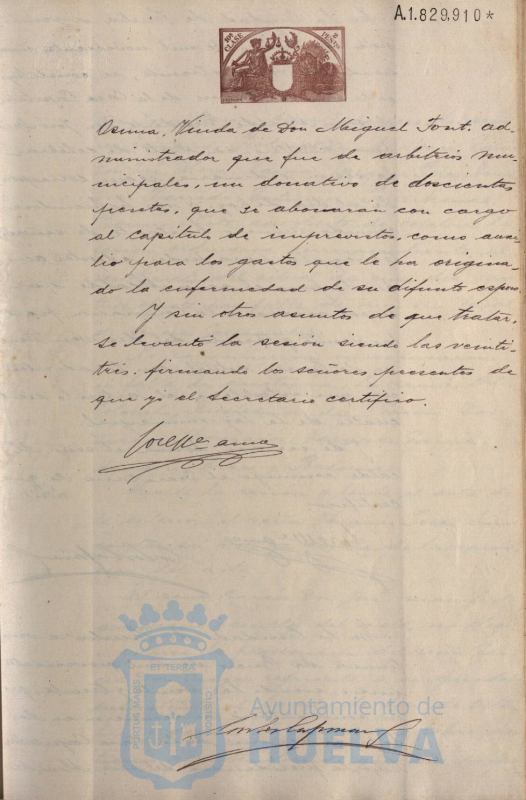 A.1.829,910*
10ª CLASE
Osuna, Viuda de Don Miguel Font. ad-
ministrador que fue de arbitrios mu-
nicipales, un donativo de doscientas
pesetas, que se abonarán con cargo
al capítulo de imprevistos, como auxi-
lio para los gastos que le ha origina-
do la enfermedad de su difunto esposo.
Y sin otros asuntos de que tratar,
se levantó la sesión siendo las veinti-
tres, firmando los señores presentes de
que yo el Secretario certifico.
PORTUS MARIS ET TERRÆ CUSTODIA
Ayuntamiento de
HUELVA